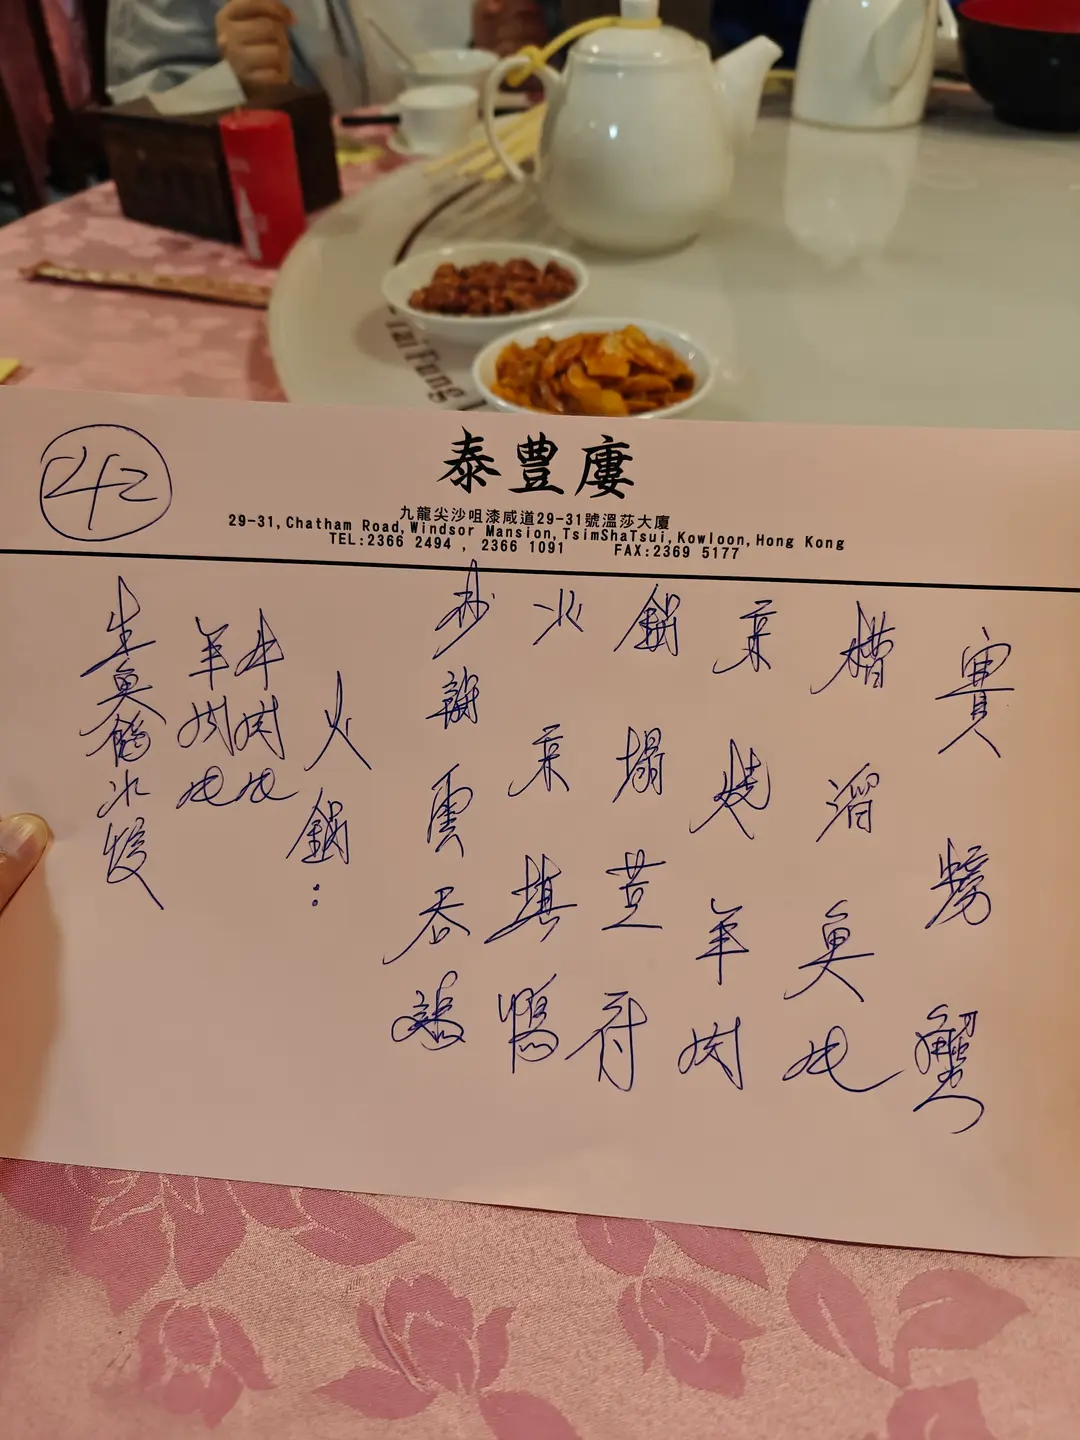 Tai Fung
泰豊廔
九龍尖沙咀漆咸道29-31號溫莎大廈
29-31,Chatham Road,Windsor Mansion,TsimShaTsui,Kowloon,Hong Kong
TEL:2366 2494 , 2366 1091 FAX:2369 5177
42
賽螃蟹
槽溜魚片
京燒羊肉
鍋塌荳付
北京填鴨
雲吞鷄
火鍋:
牛肉片
羊肉片
生魚